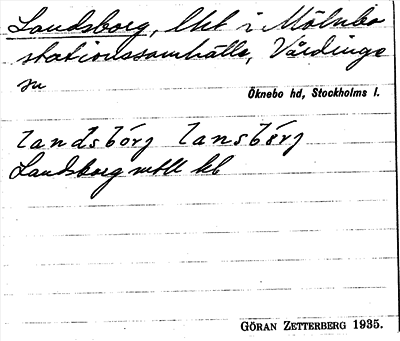 Landsborg, lht i Mölnbo
stationssamhälle, Vårdinge
sn
Öknebo hd, Stockholms l.
landsbórj lansbórj
Landsborg mtll kb
GÖRAN ZETTERBERG 1935.